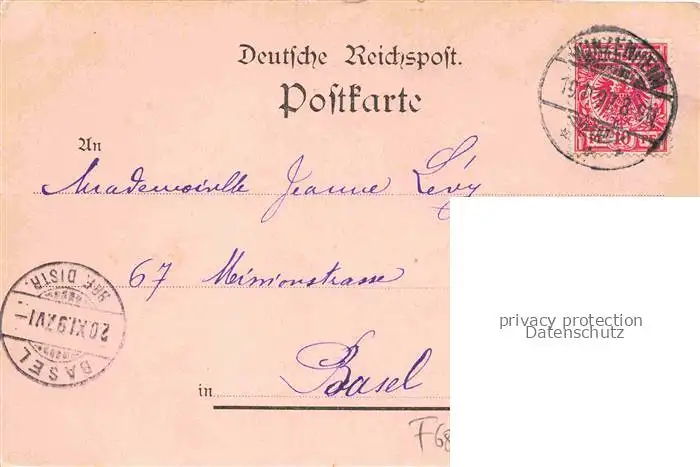 Deutsche Reichspost.
Postkarte
An
Mademoiselle Jeanne Lévy
67 Missionstrasse
in Basel
privacy protection
Datenschutz
BASEL
20.XI.97.VI-
BRF. DISTR.
10
F68